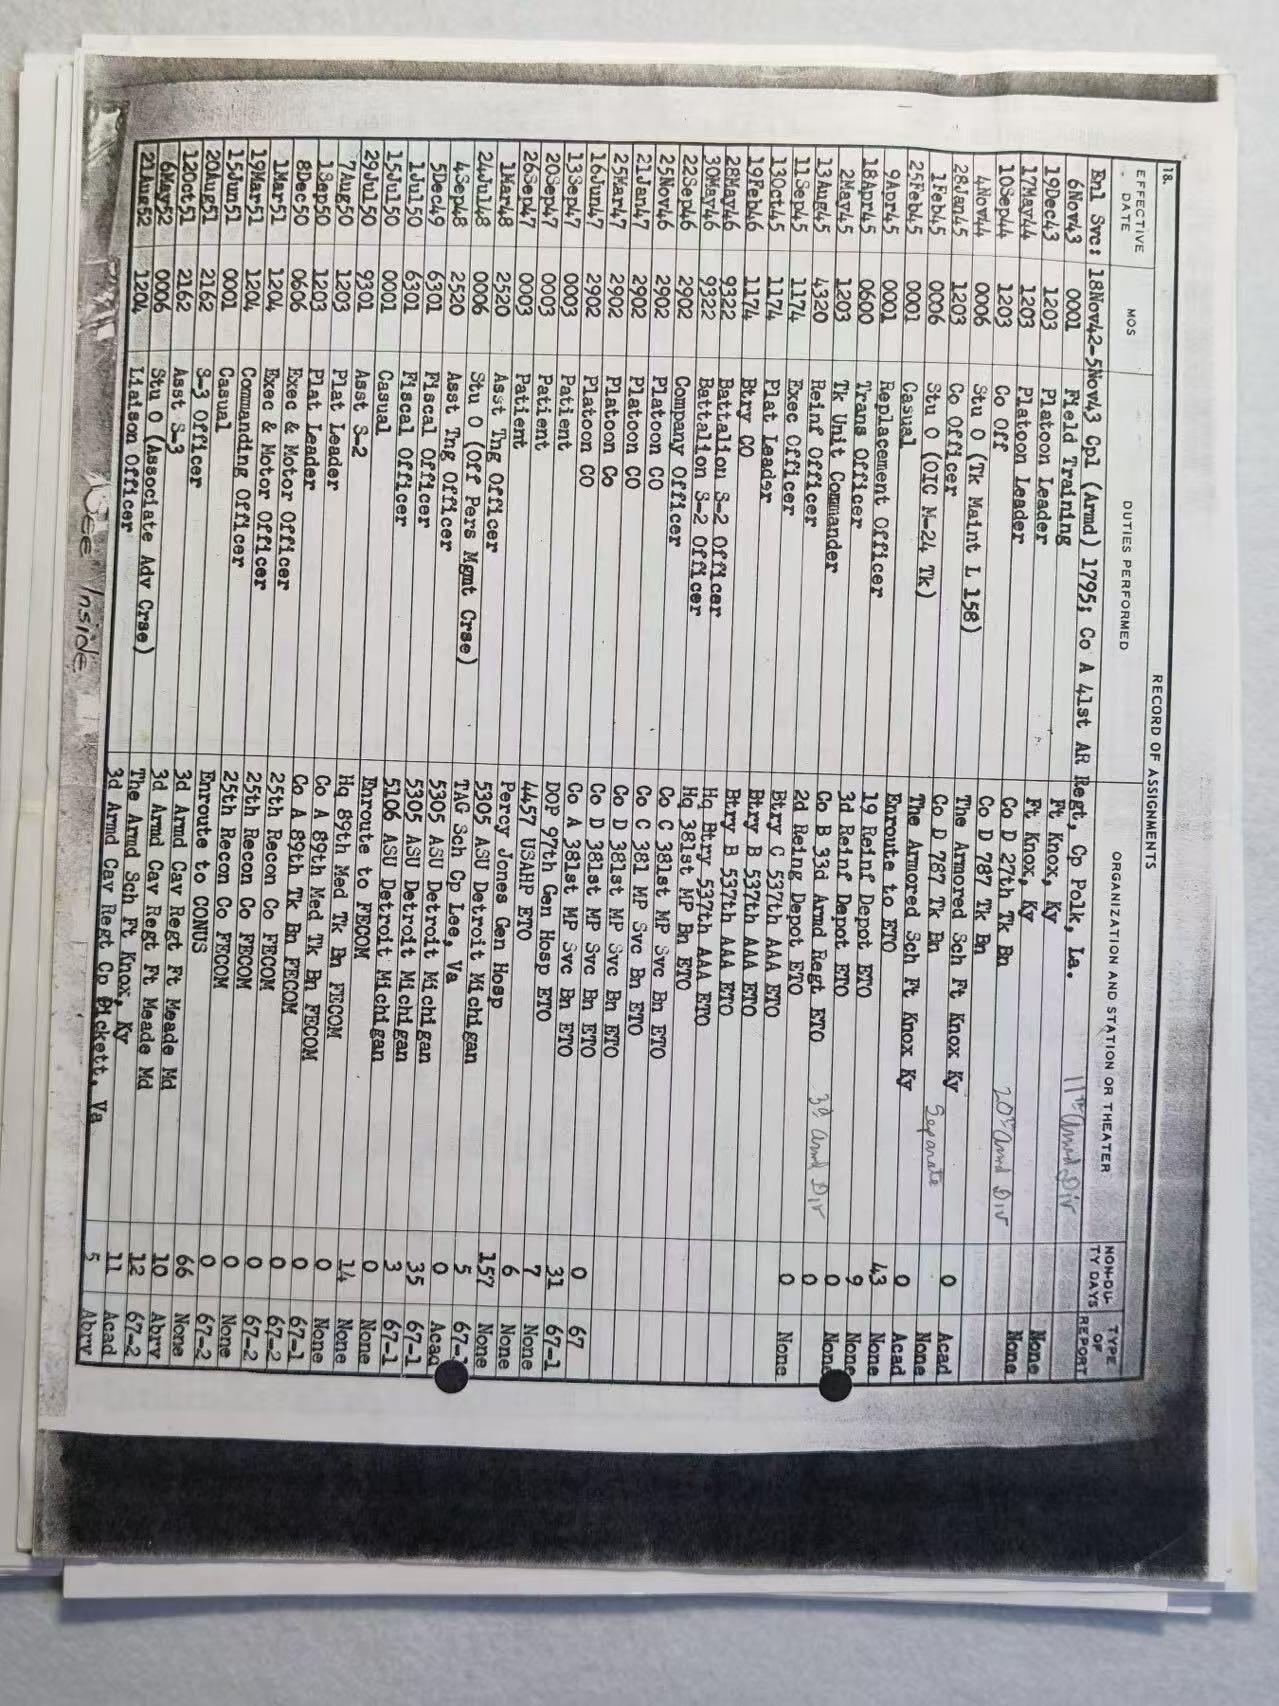 18.
RECORD OF ASSIGNMENTS
EFFECTIVE DATE MOS DUTIES PERFORMED ORGANIZATION AND STATION OR THEATER NON-DUTY DAYS TYPE OF REPORT
Enl Svc: 18Nov42-5Nov43 Cpl (Armd) 1795; Co A 41st AR Regt, Cp Polk, La. 11th Armd Div
6Nov43 0001 Field Training Ft Knox, Ky None
19Dec43 1203 Platoon Leader Ft Knox, Ky None
17May44 1203 Platoon Leader Co D 27th Tk Bn 20th Armd Div
10Sep44 1203 Co Off Co D 787 Tk Bn
4Nov44 0006 Stu O (Tk Maint L 158) The Armored Sch Ft Knox Ky 0 Acad
28Jan45 1203 Co Officer Co D 787 Tk Bn Separate None
1Feb45 0006 Stu O (OIC M-24 Tk) The Armored Sch Ft Knox Ky 0 Acad
25Feb45 0001 Casual Enroute to ETO 43 None
9Apr45 0001 Replacement Officer 19 Reinf Depot ETO 9 None
18Apr45 0600 Trans Officer 3d Reinf Depot ETO 0 None
2May45 1203 Tk Unit Commander Co B 33d Armd Regt ETO 3d Armd Div 0
13Aug45 4320 Reinf Officer 2d Reing Depot ETO 0 None
11Sep45 1174 Exec Officer Btry C 537th AAA ETO
13Oct45 1174 Plat Leader Btry B 537th AAA ETO
19Feb46 1174 Btry CO Btry B 537th AAA ETO
28May46 9322 Battalion S-2 Officer Hq Btry 537th AAA ETO
30May46 9322 Battalion S-2 Officer Hq 381st MP Bn ETO
22Sep46 2902 Company Officer Co C 381st MP Svc Bn ETO
25Nov46 2902 Platoon CO Co C 381 MP Svc Bn ETO
21Jan47 2902 Platoon CO Co D 381st MP Svc Bn ETO
25Mar47 2902 Platoon Co Co D 381st MP Svc Bn ETO 0 67
16Jun47 2902 Platoon CO Co A 381st MP Svc Bn ETO 31 67-1
13Sep47 0003 Patient DOP 97th Gen Hosp ETO 7 None
20Sep47 0003 Patient 4457 USAHP ETO 6 None
26Sep47 0003 Patient Percy Jones Gen Hosp 157 None
1Mar48 2520 Asst Tng Officer 5305 ASU Detroit Michigan 5 67-1
24Jul48 0006 Stu O (Off Pers Mgmt Crse) TAG Sch Cp Lee, Va 0 Acad
4Sep48 2520 Asst Tng Officer 5305 ASU Detroit Michigan 35 67-1
5Dec49 6301 Fiscal Officer 5305 ASU Detroit Michigan 3 67-1
1Jul50 6301 Fiscal Officer 5106 ASU Detroit Michigan 0 None
15Jul50 0001 Casual Enroute to FECOM 14 None
29Jul50 9301 Asst S-2 Hq 89th Med Tk Bn FECOM 0 None
7Aug50 1203 Plat Leader Co A 89th Med Tk Bn FECOM 0 67-1
1Sep50 1203 Plat Leader Co A 89th Tk Bn FECOM 0 67-2
8Dec50 0606 Exec & Motor Officer 25th Recon Co FECOM 0 67-2
1Mar51 1204 Exec & Motor Officer 25th Recon Co FECOM 0 None
19Mar51 1204 Commanding Officer 25th Recon Co FECOM 0 67-2
15Jun51 0001 Casual Enroute to CONUS 66 None
20Aug51 2162 S-3 Officer 3d Armd Cav Regt Ft Meade Md 10 Abrv
12Oct51 2162 Asst S-3 3d Armd Cav Regt Ft Meade Md 12 67-2
6May52 0006 Stu O (Associate Adv Crse) The Armd Sch Ft Knox, Ky 11 Acad
21Aug52 1204 Liaison Officer 3d Armd Cav Regt Cp Pickett, Va 5 Abrv
See Inside